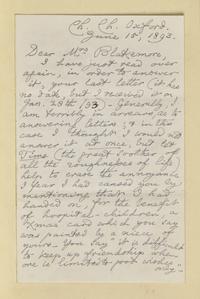 Ch. Ch. Oxford.
June 15, 1893.
Dear Mrs. Blakemore,
I have just read over
again, in order to answer
it, your last letter (it has
no date, but I received it on
Jan. 28th /93 - Generally, I
am terribly in arrears as to
answering letters; & in this
case I thought I would not
answer it at once, but let
Time (the great soother of
all the roughnesses of life)
help to erase the annoyance
I fear I had caused you by
mentioning that I had
handed on, for the benefit
of hospital-children, a
Xmas card which you say
was painted by a niece of
yours. You say "it is difficult
to keep up friendship when
one is limited to good wishes